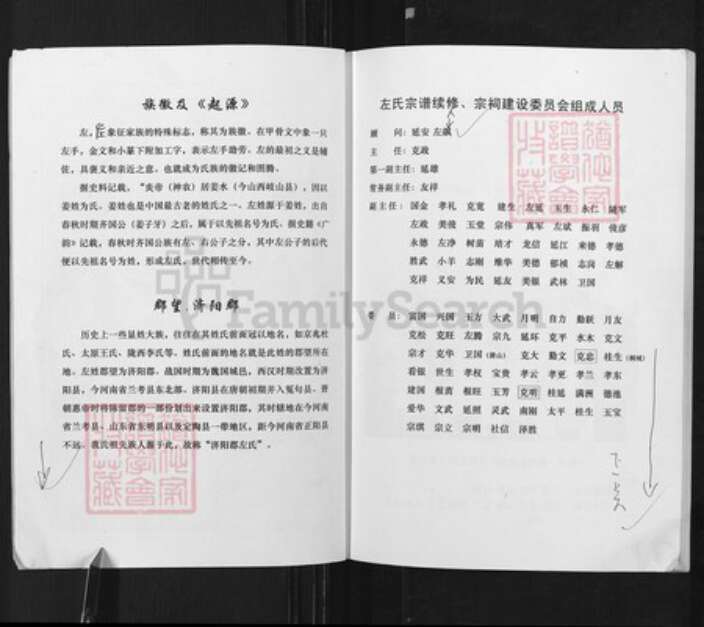 族徽及《起源》
左，象征家族的特殊标志，称其为族徽。在甲骨文中象一只
左手，金文和小篆下附加工字，表示左手助劳。左的最初之义是辅
佐，具褒义和亲近之意，也就成为氏族的徽记和图腾。
据史料记载，“炎帝（神农）居姜水（今山西岐山县），因以
姜姓为氏。姜姓也是中国最古老的姓氏之一。左姓源于姜姓，出自
春秋时期齐国公（姜子牙）之后，属于以先祖名号为氏。据史籍《广
韵》记载，春秋时齐国公族有左、右公子之分，其中左公子的后代
便以先祖名号为姓，形成左氏，世代相传至今。
郡望 济阳郡
历史上一些显姓大族，往往在其姓氏前面冠以地名，如京兆杜
氏、太原王氏、陇西李氏等。姓氏前面的地名就是此姓的郡望所在
地。左姓郡望为济阳郡。战国时期为魏国城邑，西汉时期改置为济
阳县，今河南省兰考县东北部。济阳县在唐朝初期并入冤句县。晋
朝惠帝时将陈留郡的一部份划出来设置济阳郡，其时辖地在今河南
省兰考县、山东省东明县以及定陶县一带地区，距今河南省正阳县
不远。我氏祖先族人源于此，故称“济阳郡左氏”。
左氏宗谱续修、宗祠建设委员会组成人员
顾 问：延安 左
主 任：克政
第一副主任：延雄
常务副主任：友祥
副主任：国金 孝礼 克宽 建生 左延 玉生 永仁 陵军
左政 美俊 玉堂 宗伟 真军 左斌 振羽 俊彦
永德 左净 树苗 培才 龙信 延江 来德 孝德
胜武 小羊 志刚 维华 美德 郁祯 志岗 左解
克祥 义安 为民 延友 美银 武林 卫国
委 员：富国 兴国 玉方 大武 月明 自力 勤跃 月友
克松 克旺 左腾 宗九 延环 克平 水木 克文
宗才 克华 卫国（潜山） 克大 勤文 克忠 桂生（桐城）
看银 世生 孝权 宝贵 孝云 孝更 孝兰 孝东
建国 根苗 根旺 玉芳 克明 桂延 满洲 德淮
爱华 文武 延照 灵武 南刚 太平 桂生 玉宝
宗琪 宗立 宗明 社信 泽胜
FamilySearch